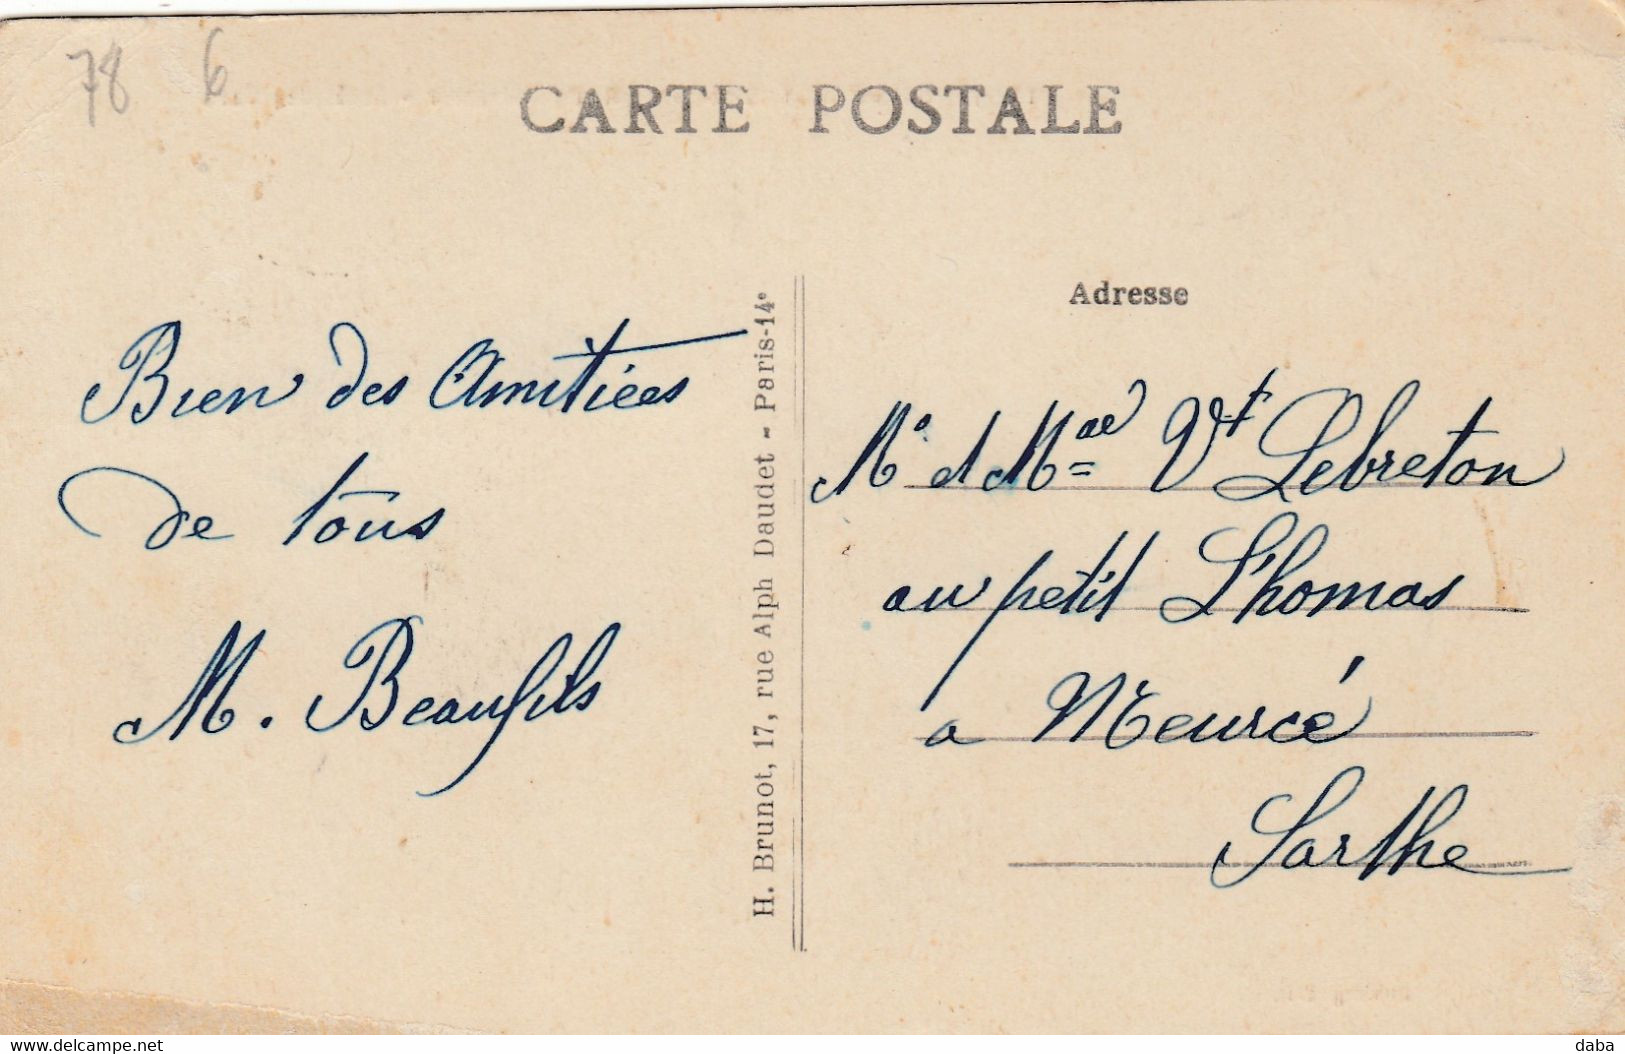 78 6
CARTE POSTALE
Bien des Amitiées
de tous
M. Beaufils
H. Brunot, 17, rue Alph Daudet - Paris-14e
Adresse
Mr et Mme Vt Lebreton
au petit L'homas
a Meurcé
Sarthe
www.delcampe.net
daba